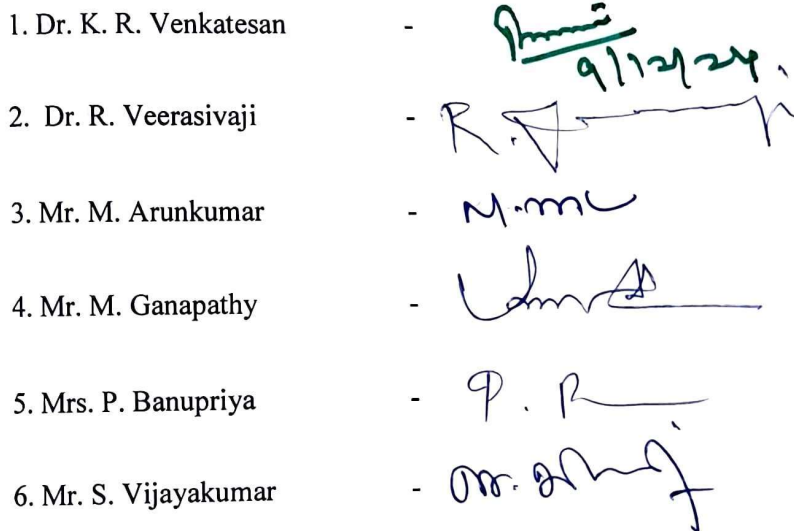 1. Dr. K. R. Venkatesan -
9/12/24.
2. Dr. R. Veerasivaji - R.
3. Mr. M. Arunkumar -
4. Mr. M. Ganapathy -
5. Mrs. P. Banupriya - P.
6. Mr. S. Vijayakumar -